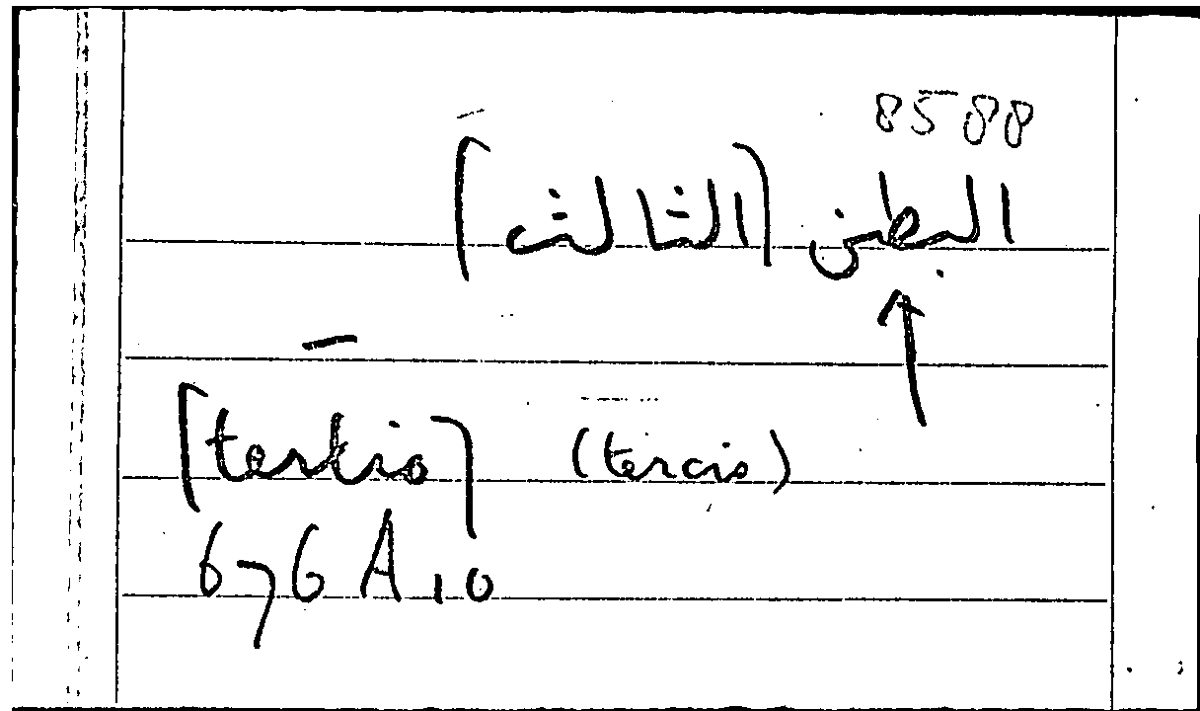 8588
البطن [الثالث]
[tertio] (tercio)
676 A 10